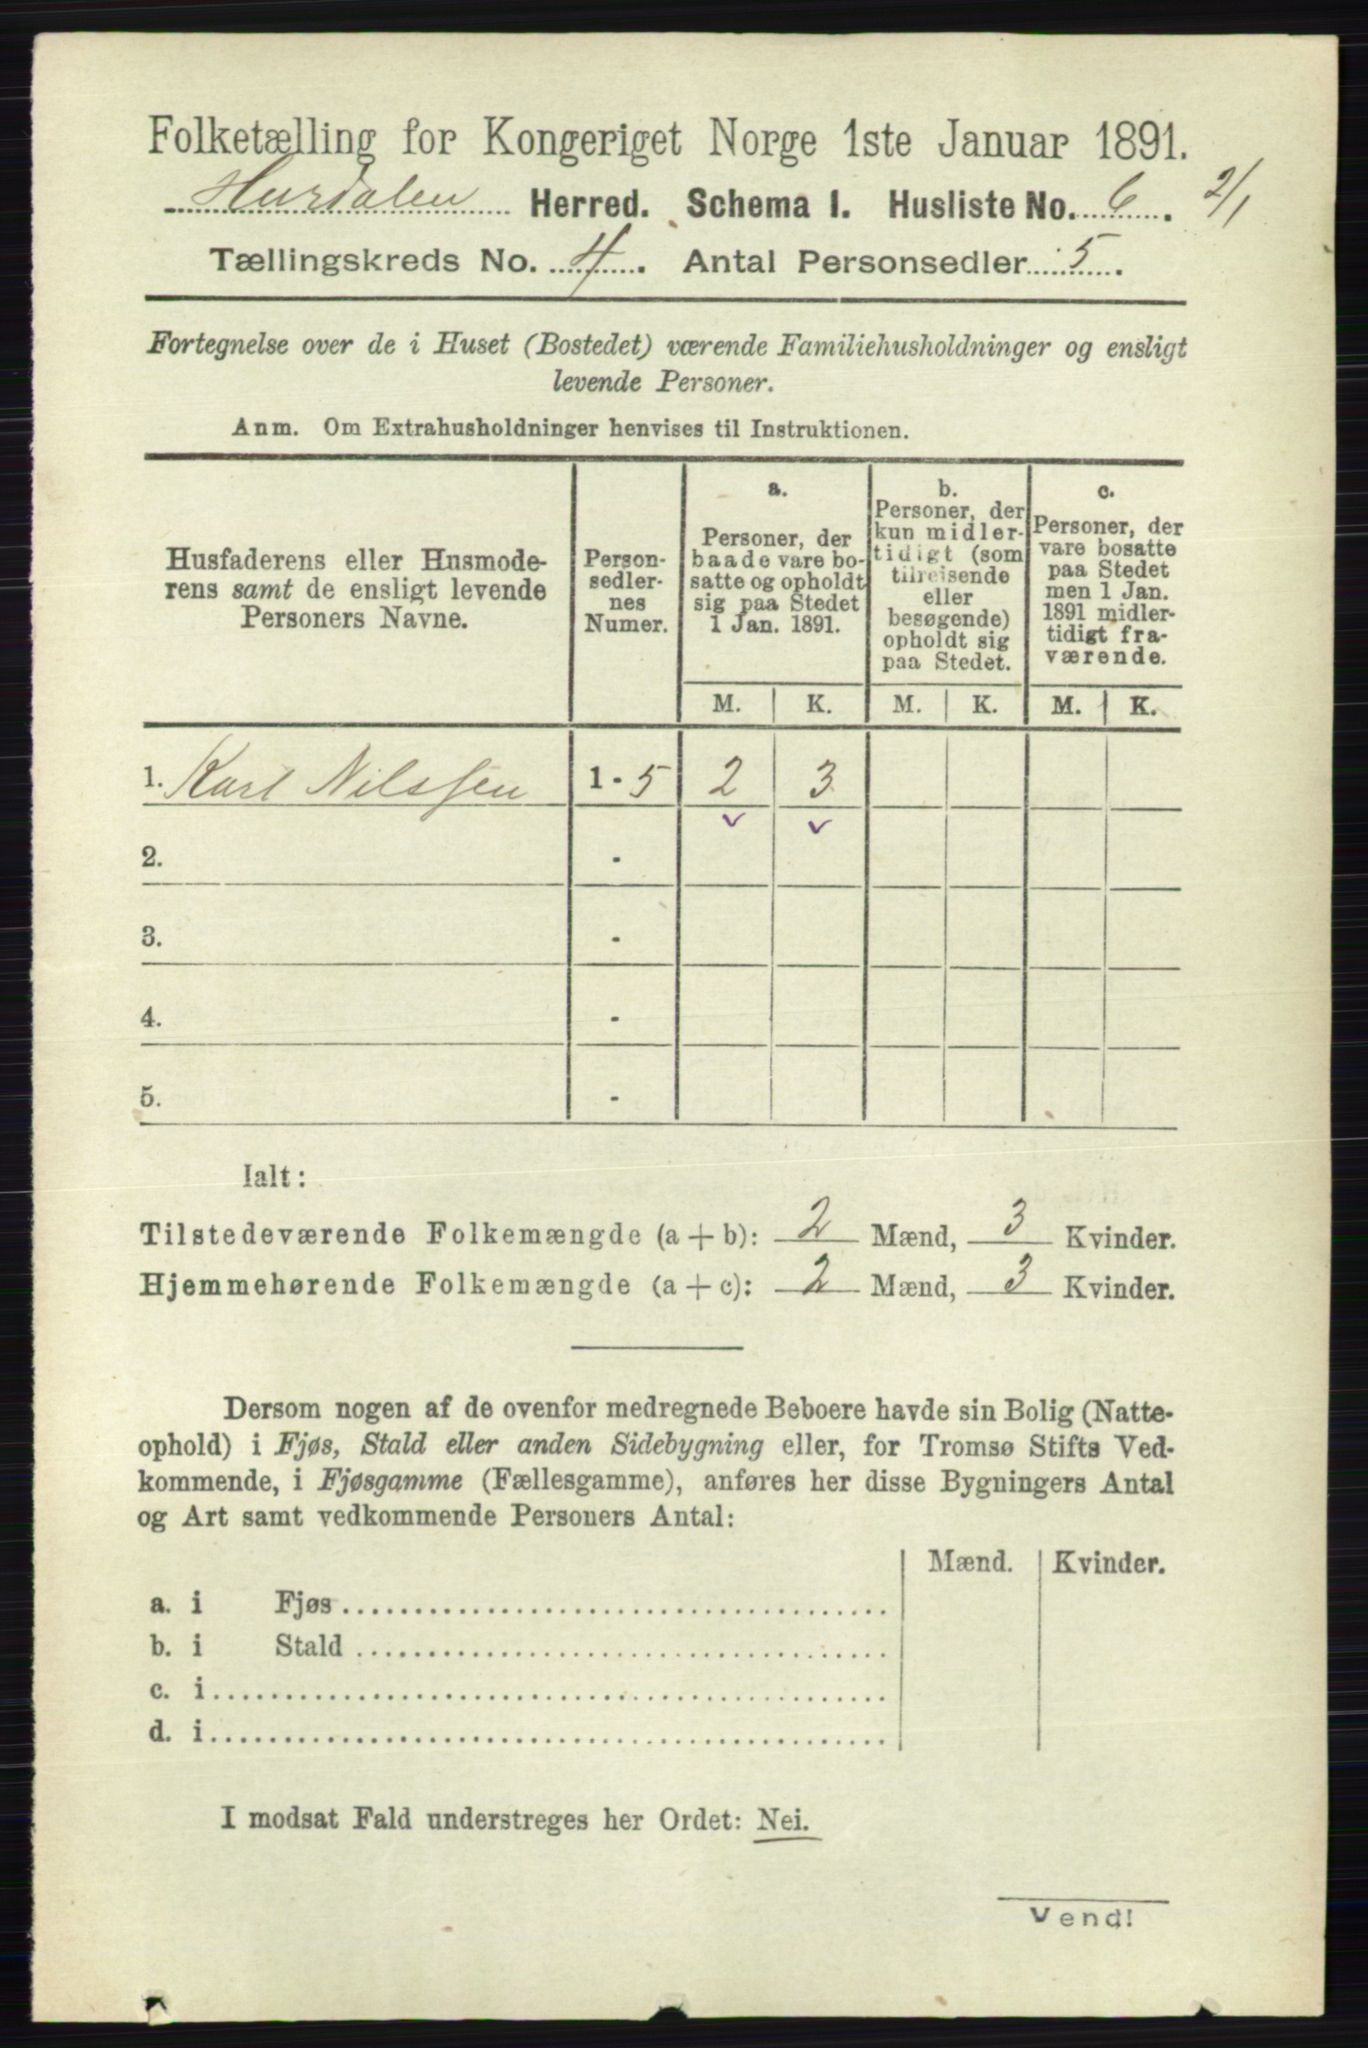 Folketælling for Kongeriget Norge 1ste Januar 1891.
Hurdalen Herred. Schema I. Husliste No. 6. 2/1
Tællingskreds No. 4. Antal Personsedler 5.
Fortegnelse over de i Huset (Bostedet) værende Familiehusholdninger og ensligt
levende Personer.
Anm. Om Extrahusholdninger henvises til Instruktionen.
Husfaderens eller Husmode-
rens samt de ensligt levende
Personers Navne.
Person-
sedler-
nes
Numer.
a.
Personer, der
baade vare bo-
satte og opholdt
sig paa Stedet
1 Jan. 1891.
b.
Personer, der
kun midler-
tidigt (som
tilreisende
eller
besøgende)
opholdt sig
paa Stedet.
c.
Personer, der
vare bosatte
paa Stedet
men 1 Jan.
1891 midler-
tidigt fra-
værende.
M. K. M. K. M. K.
1. Karl Nilssen 1 - 5 2 3
2. -
3. -
4. -
5. -
Ialt:
Tilstedeværende Folkemængde (a + b): 2 Mænd, 3 Kvinder.
Hjemmehørende Folkemængde (a + c): 2 Mænd, 3 Kvinder.
Dersom nogen af de ovenfor medregnede Beboere havde sin Bolig (Natte-
ophold) i Fjøs, Stald eller anden Sidebygning eller, for Tromsø Stifts Ved-
kommende, i Fjøsgamme (Fællesgamme), anføres her disse Bygningers Antal
og Art samt vedkommende Personers Antal:
Mænd. Kvinder.
a. i Fjøs
b. i Stald
c. i
d. i
I modsat Fald understreges her Ordet: Nei.
Vend!